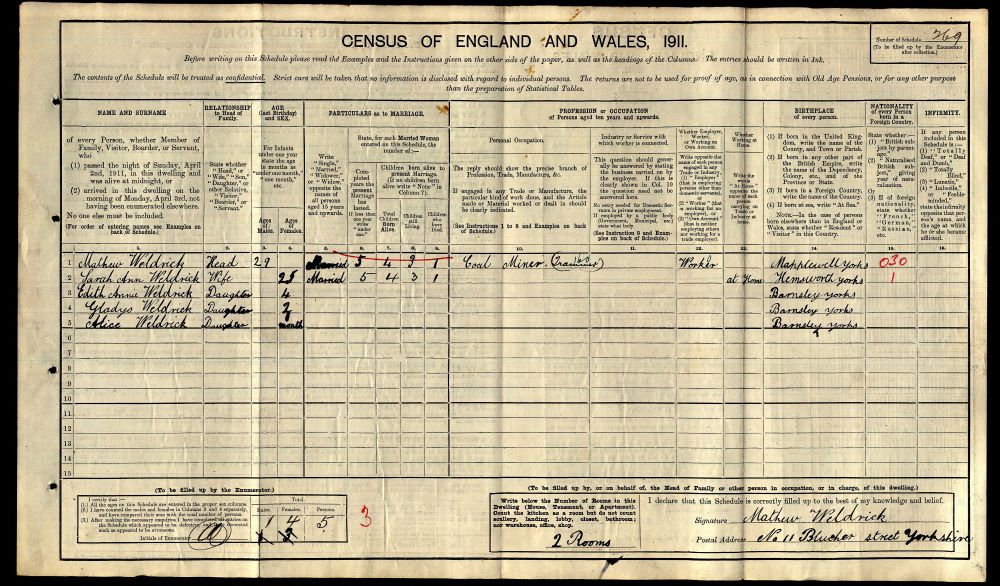 CENSUS OF ENGLAND AND WALES, 1911.
Number of Schedule 269
(To be filled up by the Enumerator after collection.)
Before writing on this Schedule please read the Examples and the Instructions given on the other side of the paper, as well as the headings of the Columns. The entries should be written in Ink.
The contents of the Schedule will be treated as confidential. Strict care will be taken that no information is disclosed with regard to individual persons. The returns are not to be used for proof of age, as in connection with Old Age Pensions, or for any other purpose
than the preparation of Statistical Tables.
NAME AND SURNAME
of every Person, whether Member of
Family, Visitor, Boarder, or Servant,
who
(1) passed the night of Sunday, April
2nd, 1911, in this dwelling and
was alive at midnight, or
(2) arrived in this dwelling on the
morning of Monday, April 3rd, not
having been enumerated elsewhere.
No one else must be included.
(For order of entering names see Examples on
back of Schedule.)
RELATIONSHIP
to Head of
Family.
State whether
"Head," or
"Wife," "Son,"
"Daughter," or
other Relative,
"Visitor,"
"Boarder," or
"Servant."
AGE
(last Birthday)
and SEX.
For Infants
under one year
state the age
in months as
"under one month,"
"one month,"
etc.
Ages of Males.
Ages of Females.
PARTICULARS as to MARRIAGE.
Write
"Single,"
"Married,"
"Widower,"
or "Widow,"
opposite the
names of
all persons
aged 15 years
and upwards.
State, for each Married Woman
entered on this Schedule, the
number of:—
Completed years the
present
Marriage
has
lasted.
If less than
one year
write
"under one."
Children born alive to
present Marriage.
(If no children born
alive write "None" in
Column 7).
Total Children Born Alive.
Children still Living.
Children who have Died.
PROFESSION or OCCUPATION
of Persons aged ten years and upwards.
Personal Occupation.
The reply should show the precise branch of
Profession, Trade, Manufacture, &c.
If engaged in any Trade or Manufacture, the
particular kind of work done, and the Article
made or Material worked or dealt in should
be clearly indicated.
(See Instructions 1 to 8 and Examples on back
of Schedule.)
Industry or Service with
which worker is connected.
This question should generally be answered by stating
the business carried on by
the employer. If this is
clearly shown in Col. 10
the question need not be
answered here.
No entry needed for Domestic Servants in private employment.
If employed by a public body
(Government, Municipal, etc.)
state what body.
(See Instruction 9 and Examples on back of Schedule.)
Whether Employer,
Worker,
or Working on
Own Account.
Whether
Working at
Home.
BIRTHPLACE
of every person.
(1) If born in the United Kingdom, write the name of the
County, and Town or Parish.
(2) If born in any other part of
the British Empire, write
the name of the Dependency,
Colony, etc., and of the
Province or State.
(3) If born in a Foreign Country,
write the name of the Country.
(4) If born at sea, write "At Sea."
NOTE.—In the case of persons
born elsewhere than in England or
Wales, state whether "Resident" or
"Visitor" in this Country.
NATIONALITY
of every Person
born in a
Foreign Country.
INFIRMITY.
1. 2. 3. 4. 5. 6. 7. 8. 9. 10. 11. 12. 13. 14. 15. 16.
1 Mathew Weldrick Head 29 Married 5 4 3 1 Coal Miner Worker Mapplewell Yorks 030
2 Sarah Ann Weldrick Wife 25 Married 5 4 3 1 at Home Hemsworth Yorks 1
3 Edith Annie Weldrick Daughter 4 Barnsley Yorks
4 Gladys Weldrick Daughter 2 Barnsley Yorks
5 Alice Weldrick Daughter month Barnsley Yorks
6
7
8
9
10
11
12
13
14
15
(To be filled up by the Enumerator.)
I certify that:—
(1.) All the ages on this Schedule are entered in the proper sex columns.
(2.) I have counted the males and females in Columns 3 and 4 separately,
and have compared their sum with the total number of persons.
(3.) After making the necessary enquiries I have completed all entries on
the Schedule which appeared to be defective, and have corrected
such as appeared to be erroneous.
Initials of Enumerator
Total.
Males. Females. Persons.
1 4 5
3
(To be filled up by, or on behalf of, the Head of Family or other person in occupation, or in charge, of this dwelling.)
Write below the Number of Rooms in this
Dwelling (House, Tenement, or Apartment).
Count the kitchen as a room but do not count
scullery, landing, lobby, closet, bathroom;
nor warehouse, office, shop.
2 Rooms
I declare that this Schedule is correctly filled up to the best of my knowledge and belief.
Signature Mathew Weldrick
Postal Address No 11 Blucher street Yorkshire